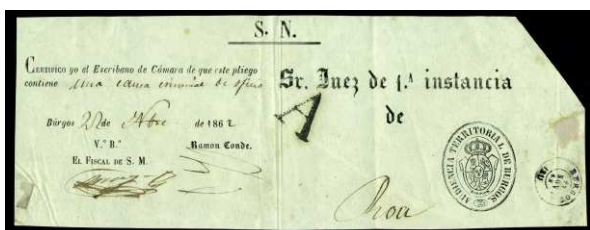 S. N.
CERTIFICO yo el Escribano de Cámara de que este pliego
contiene Una causa criminal de oficio
Búrgos 27 de Nbre de 1862
V.º B.º Ramon Conde.
EL FISCAL DE S. M.
Sr. Juez de 1.ª instancia
de
Roa
A
AUDIENCIA TERRITORIAL DE BURGOS
BURGOS